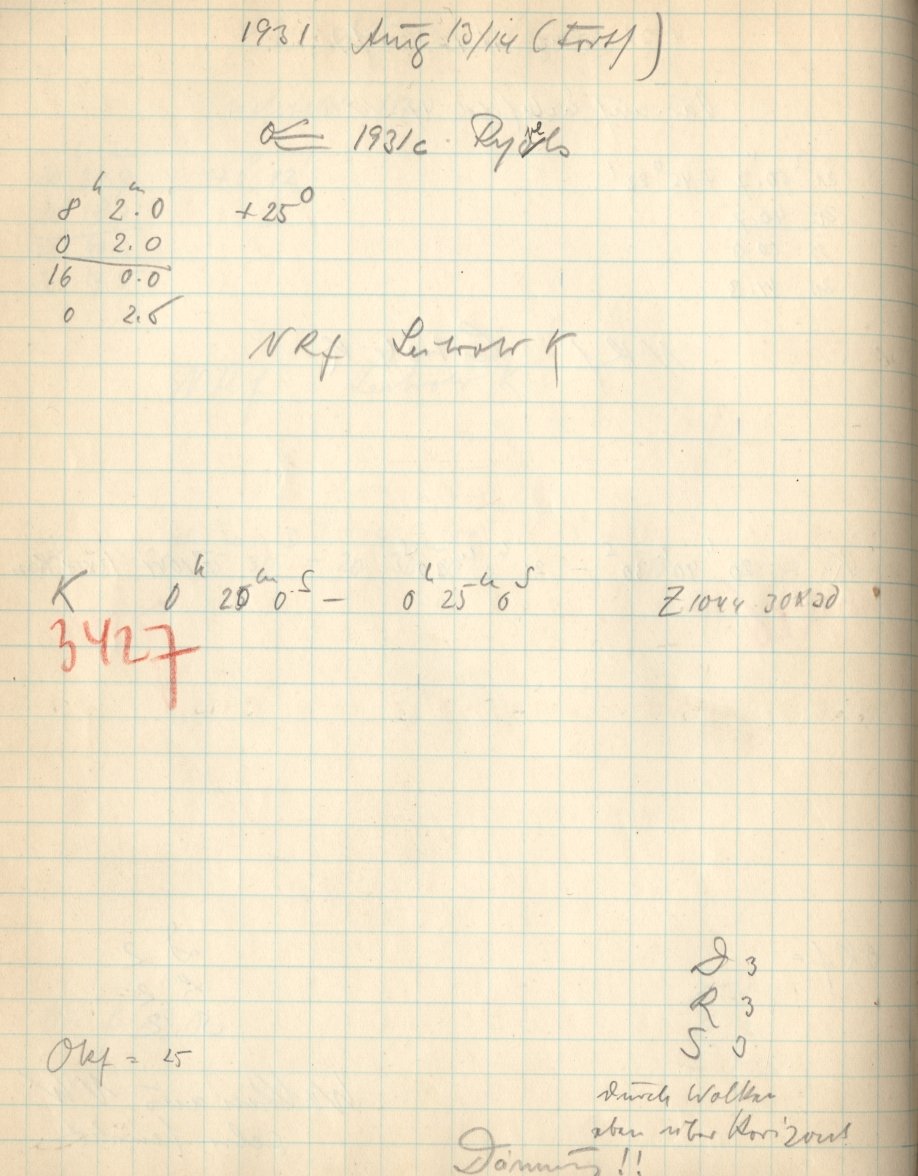 1931 Aug 13/14 (Forts)
1931c Ryves
8 h 2.0 m +25°
0 2.0
16 0.0
0 2.5
N Rf Leitrohr K
K 0 h 20 m 0 s – 0 h 25 m 0 s Z 1044
3427
D 3
R 3
S 3
Okf = 25
durch Wolken
eben über Horizont
Dämmrg !!